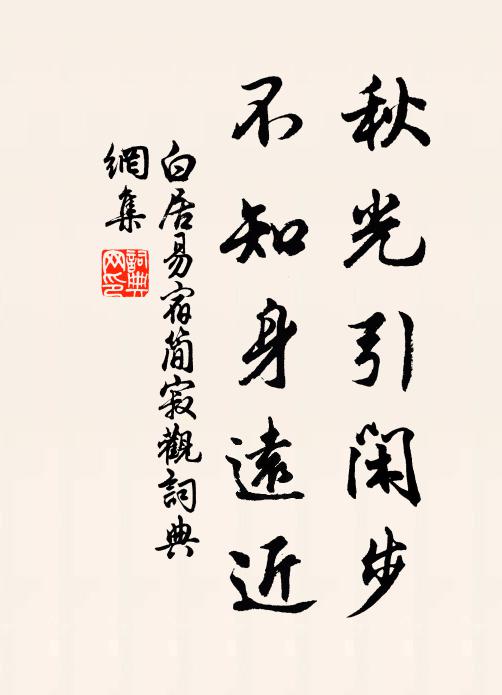 秋光引閑步
不知身遠近
白居易宿簡寂觀詞典
網集
詞典网印